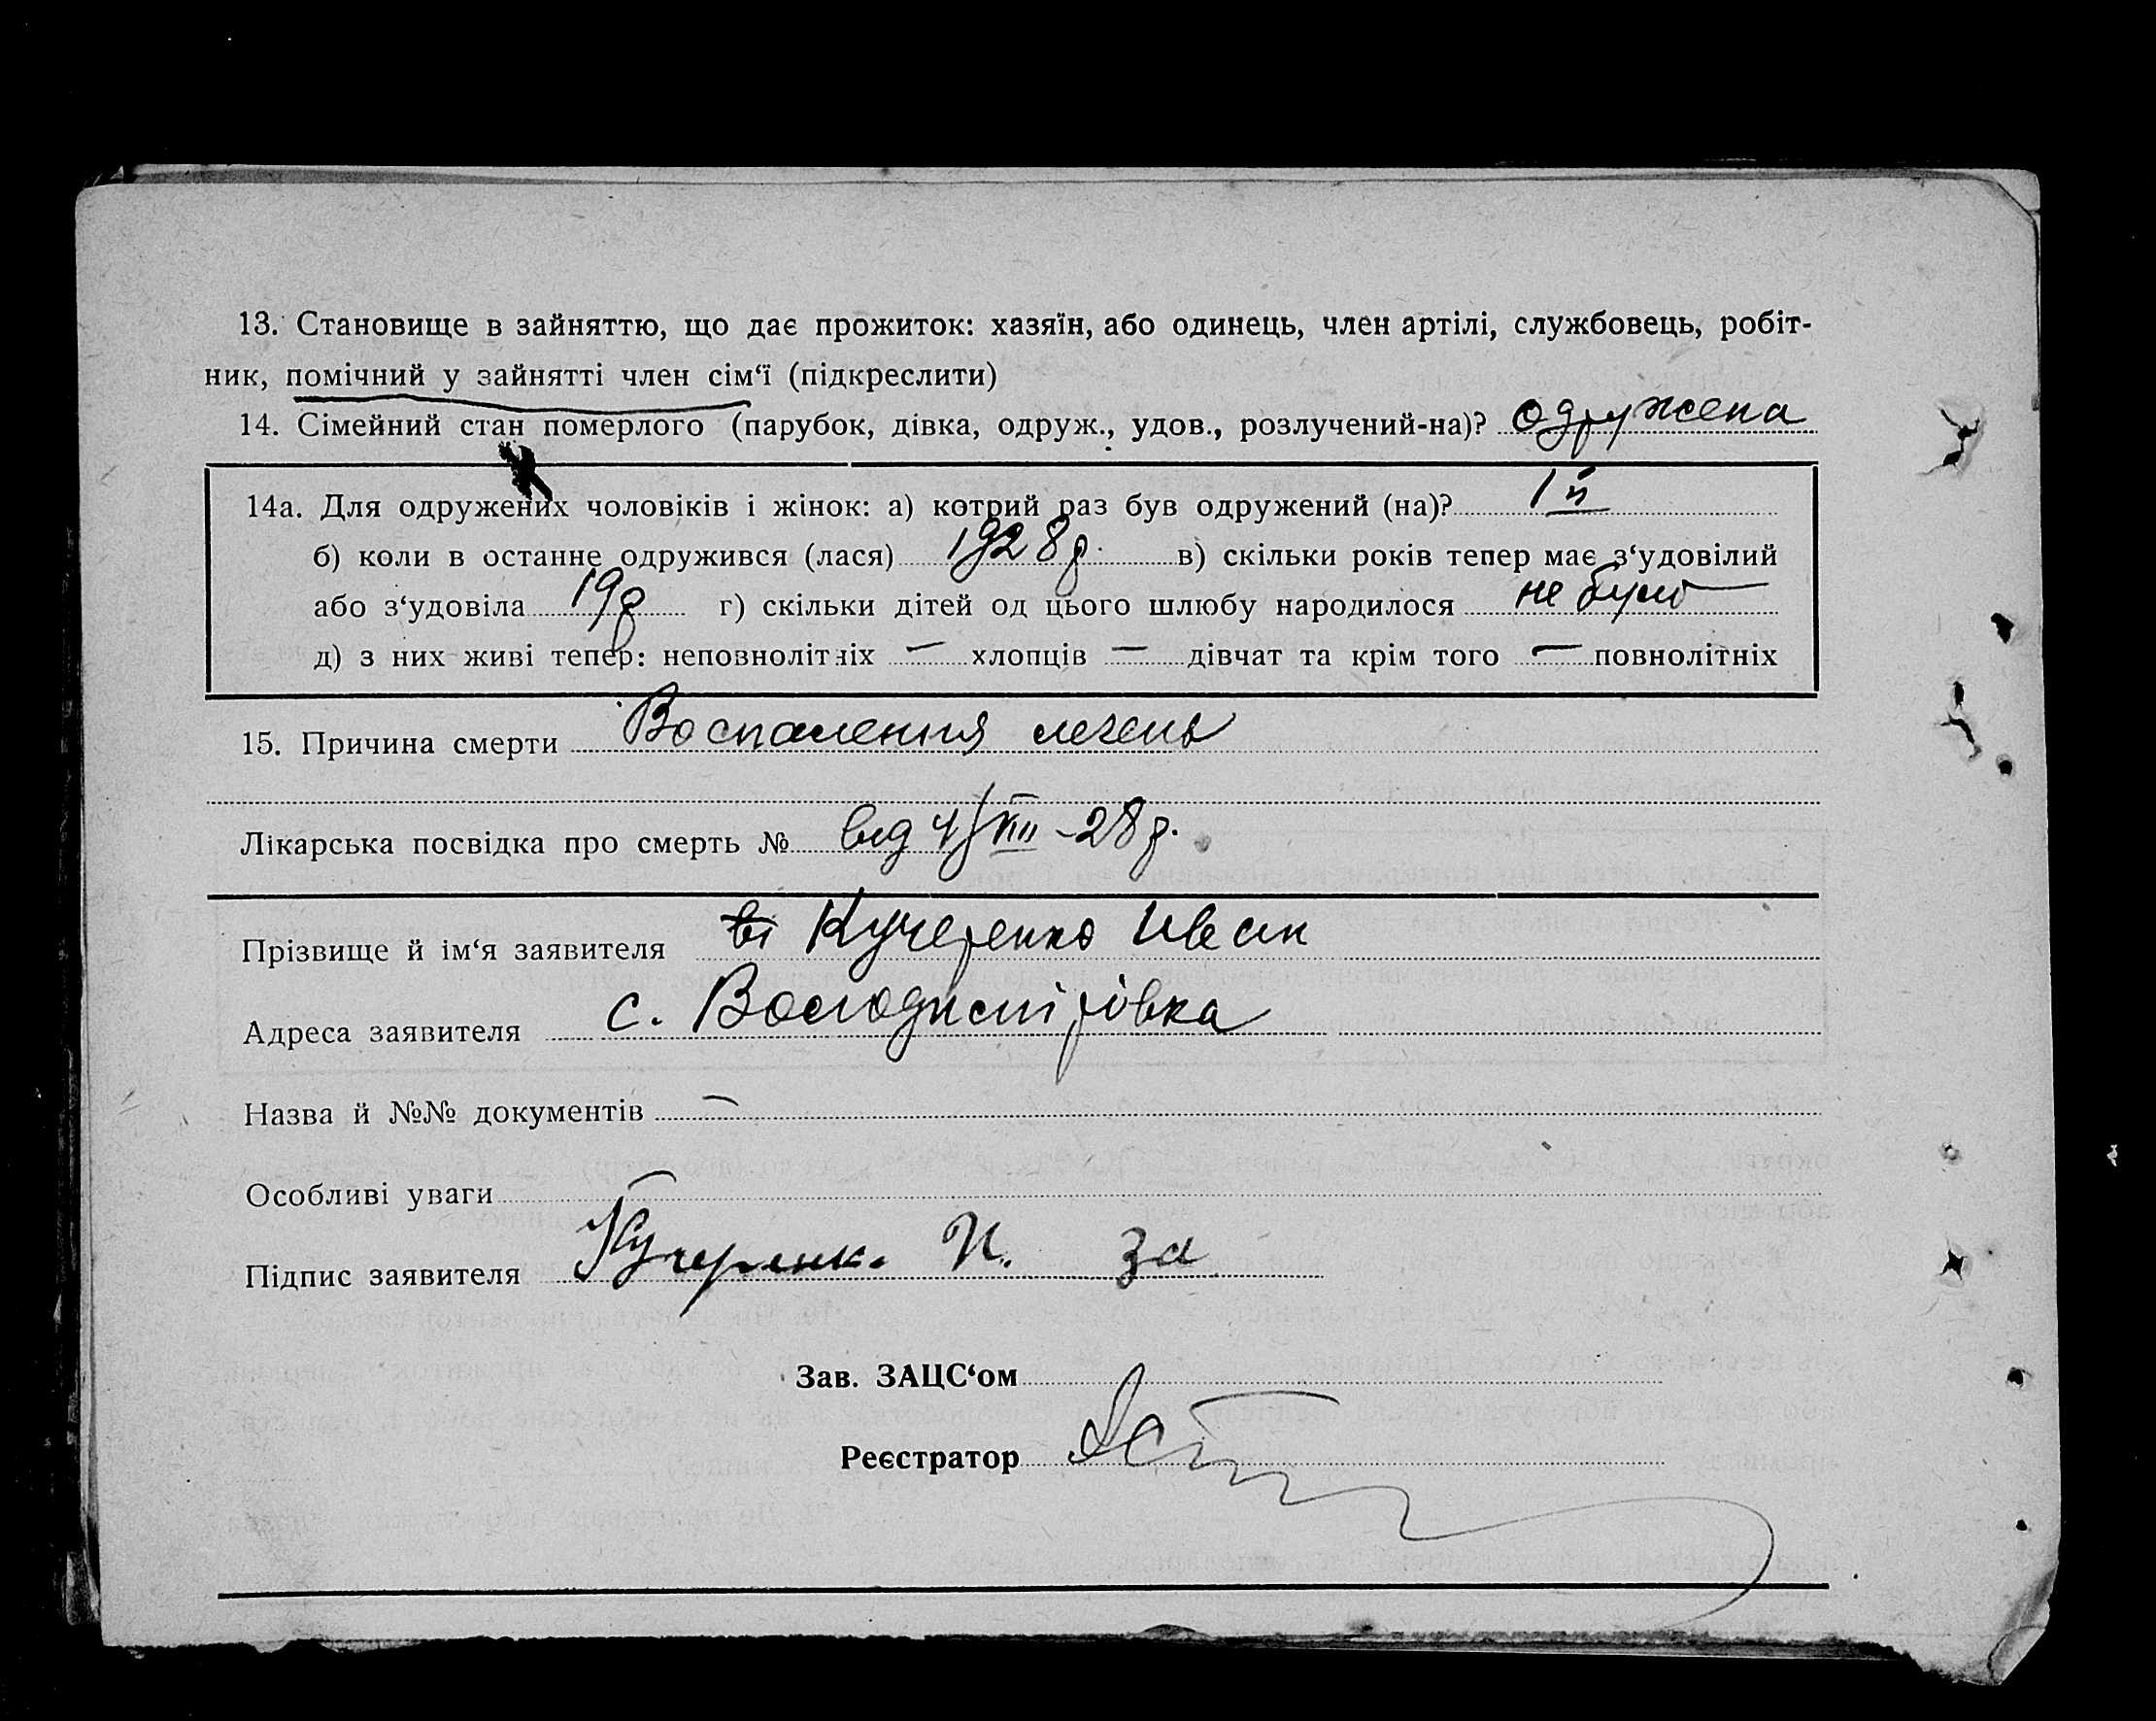 13. Становище в зайняттю, що дає прожиток: хазяїн, або одинець, член артілі, службовець, робіт-
ник, помічний у зайнятті член сім‘ї (підкреслити)
14. Сімейний стан померлого (парубок, дівка, одруж., удов., розлучений-на)? одружена
14а. Для одружених чоловіків і жінок: а) котрий раз був одружений (на)? 1й
б) коли в останне одружився (лася) 1928 р. в) скільки років тепер має з‘удовілий
або з‘удовіла 19р г) скільки дітей од цього шлюбу народилося не було
д) з них живі тепер: неповнолітніх — хлопців — дівчат та крім того — повнолітніх
15. Причина смерти Воспалення легень
Лікарська посвідка про смерть № від 4/XII - 28 р.
Прізвище й ім‘я заявителя Кучеренко Иван
Адреса заявителя с.
Назва й №№ документів —
Особливі уваги —
Підпис заявителя Кучеренк. И. за
Зав. ЗАЦС‘ом
Реєстратор